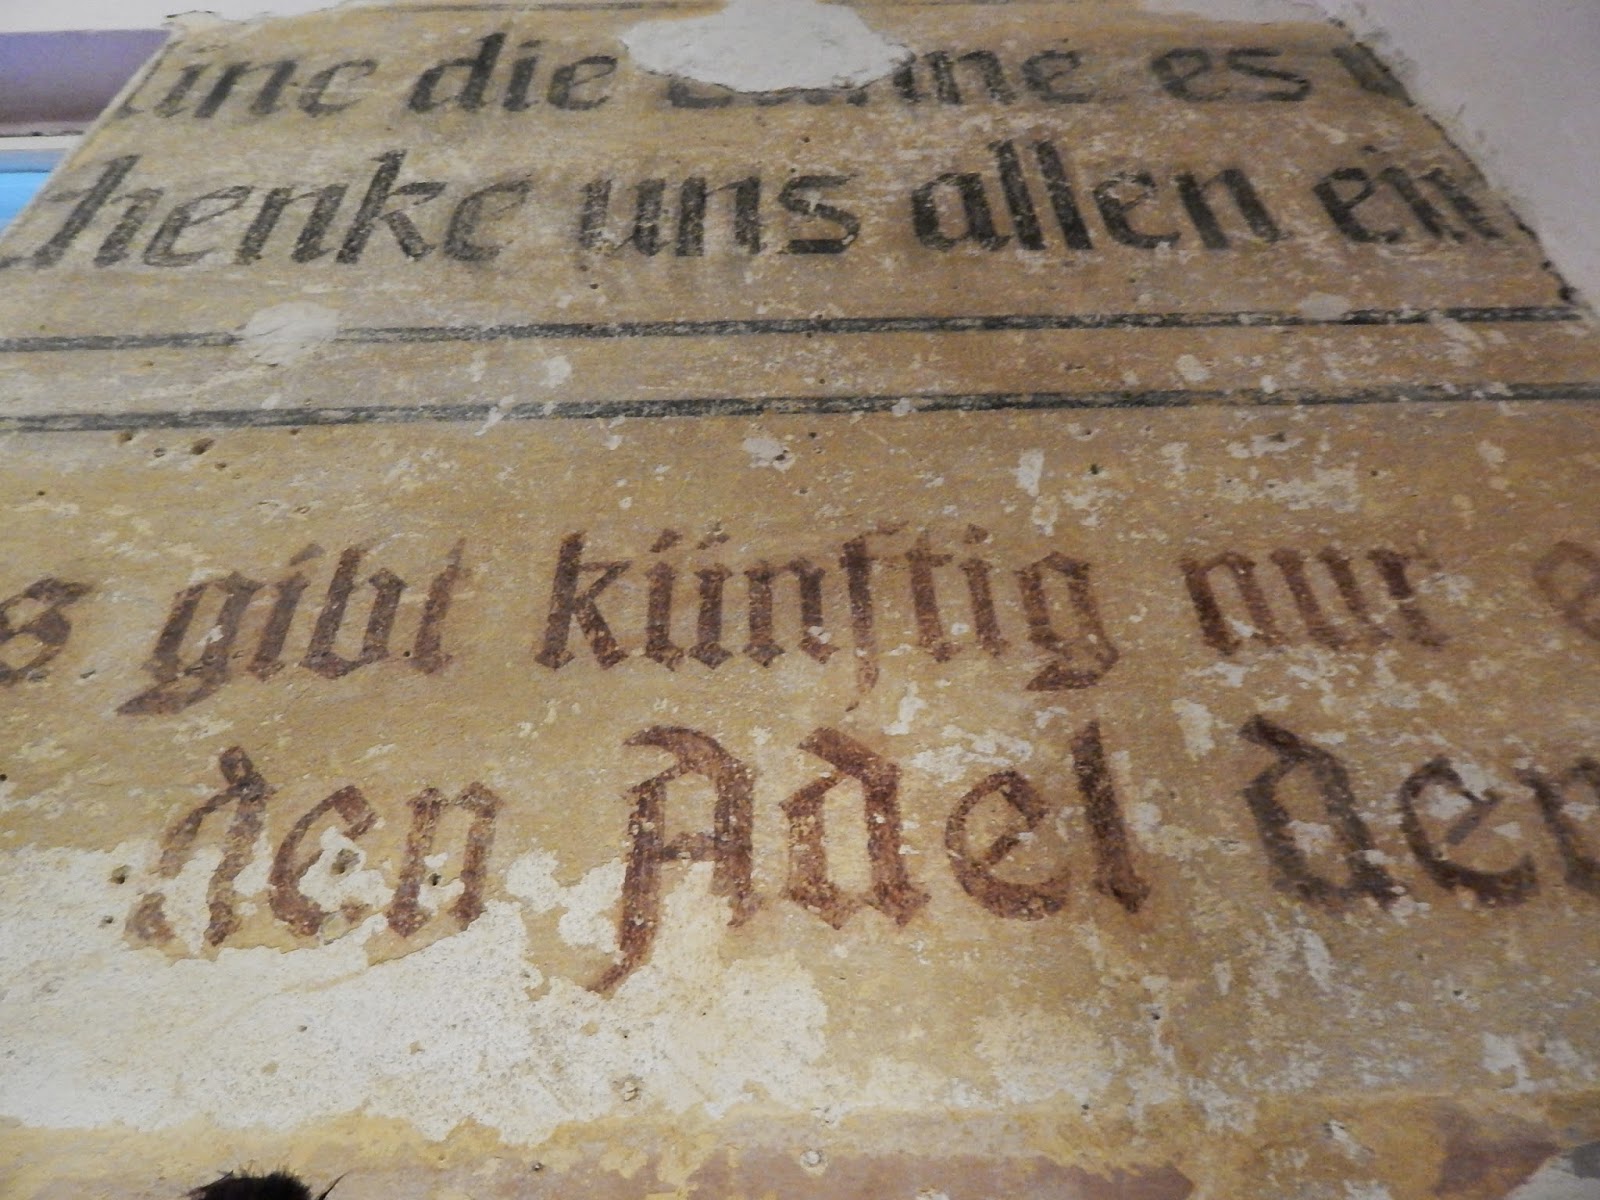 die es
schenke uns allen ein
s gibt künftig nur e
den Adel der